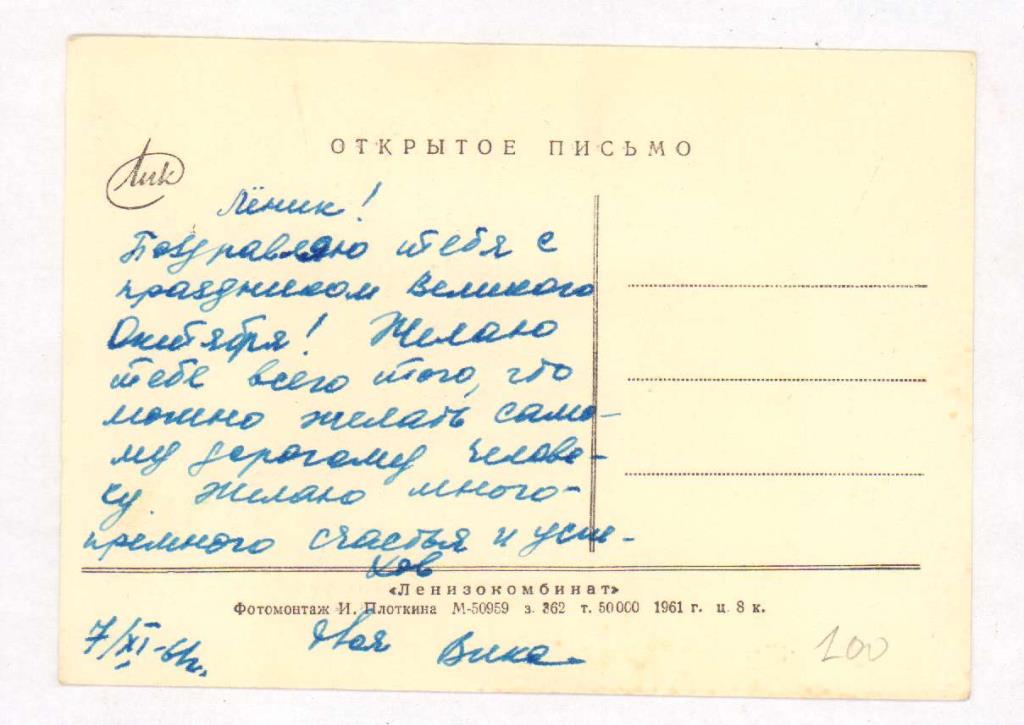 ОТКРЫТОЕ ПИСЬМО
Лик
Лёник!
Поздравляю тебя с
праздником Великого
Октября! Желаю
тебе всего того, что
можно желать само-
му дорогому челове-
ку. Желаю много-
премного счастья и успе-
хов
«Ленизокомбинат»
Фотомонтаж И. Плоткина М-50959 з. 362 т. 50 000 1961 г. ц. 8 к.
Твоя Вика
7/XI-61г.
100